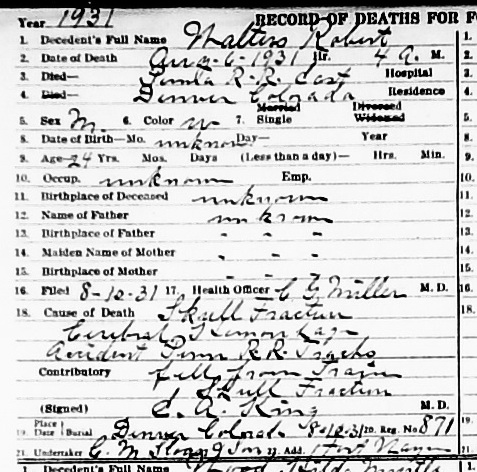 Year 1931 RECORD OF DEATHS FOR F
1. Decedent's Full Name Walters Robert
2. Date of Death Aug-6-1931 Hr. 4 A. M.
3. Died— Penna R-R. East Hospital
4. Died— Denver Colorado Residence
Married Divorced
5. Sex M. 6. Color W 7. Single Widowed
8. Date of Birth—Mo. unknown Day— Year
9. Age 24 Yrs. Mos. Days (Less than a day)— Hrs. Min.
10. Occup. unknown Emp.
11. Birthplace of Deceased unknown
12. Name of Father unknown
13. Birthplace of Father " " "
14. Maiden Name of Mother " " "
15. Birthplace of Mother " " "
16. Filed 8-12-31 17. Health Officer Miller M. D.
18. Cause of Death Skull Fraction
Cerebral Hemorrhage
Accident Penn R.R. Tracks
Contributory fell from Train
Skull Fraction
(Signed) C. A. King M. D.
19. Place Date Burial Denver Colorado 8-12-31 20. Reg. No. 871
21. Undertaker C. M. Sloan & Son 22. Add. Fort Wayne
1. Decedent's Full Name Wood